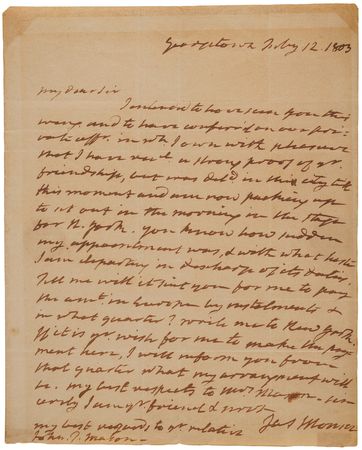 Georgetown Feby 12 1803
My dear Sir
I intended to have seen you this
way, and to have conferr'd on our pri-
vate affr. in wh. I own with pleasure
that I have recd. a strong proof of yr.
friendship, but was detd. in this city till
this moment and am now packing up
to set out in the morning in the stage
for N. York. you know how sudden
my appointment was, & with what haste
I am departing in discharge of its duties.
Tell me will it suit you for me to pay
the amt. in Europe by instalments &
in what quarter? write me to New York.
If it is yr. wish for me to make the pay-
ment here, I will inform you from
that quarter what my arrangment will
be. my best respects to Mrs. Mason. sin-
cerely I am yr. friend & servt
Jas Monroe
my best regards to yr. relation
John T. Mason -